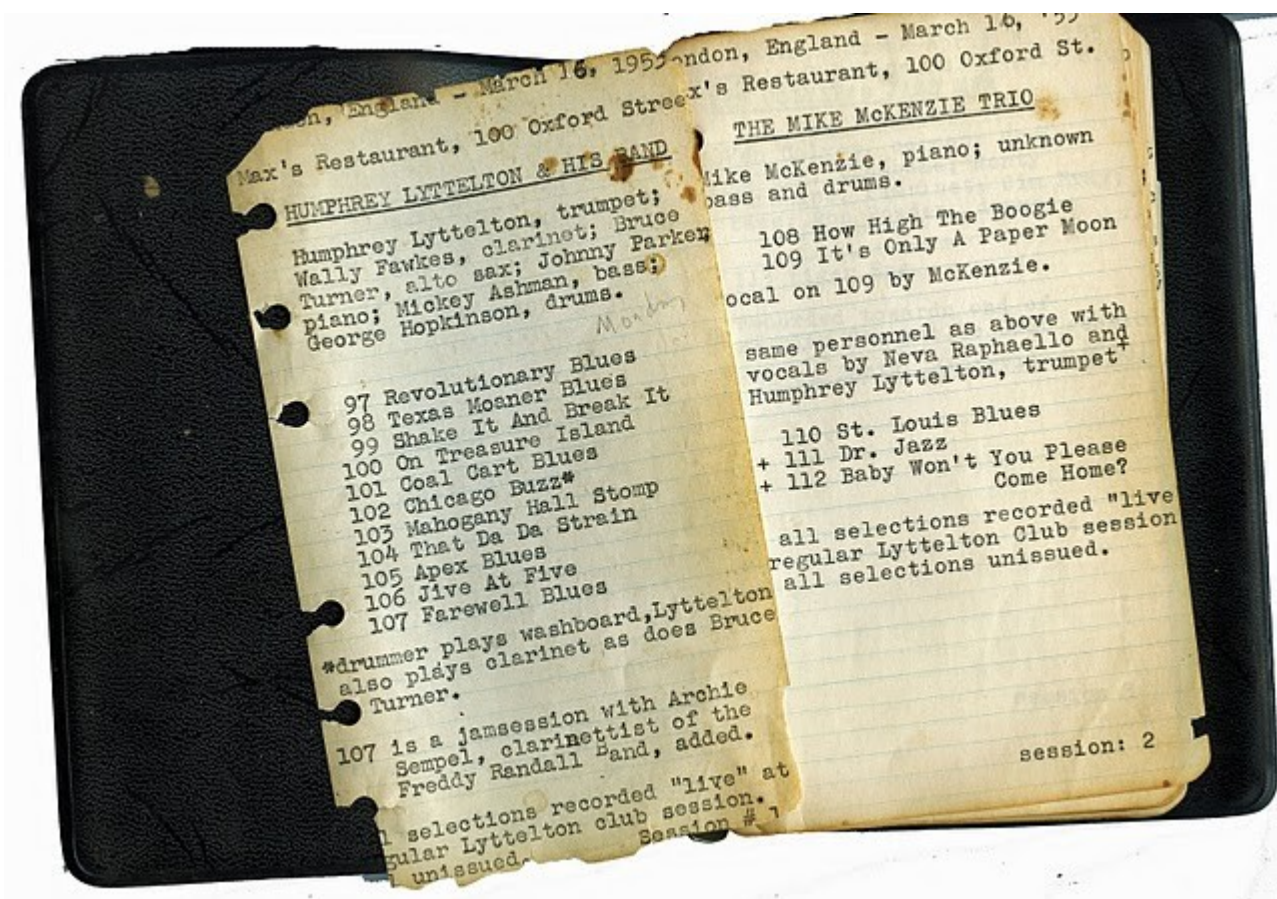 England - March 16, 195
Max's Restaurant, 100 Oxford Stree
HUMPHREY LYTTELTON & HIS BAND
Humphrey Lyttelton, trumpet;
Wally Fawkes, clarinet; Bruce
Turner, alto sax; Johnny Parker,
piano; Mickey Ashman, bass;
George Hopkinson, drums.
Monday
97 Revolutionary Blues
98 Texas Moaner Blues
99 Shake It And Break It
100 On Treasure Island
101 Coal Cart Blues
102 Chicago Buzz*
103 Mahogany Hall Stomp
104 That Da Da Strain
105 Apex Blues
106 Jive At Five
107 Farewell Blues
*drummer plays washboard,Lyttelton
also plays clarinet as does Bruce
Turner.
107 is a jamsession with Archie
Sempel, clarinettist of the
Freddy Randall Band, added.
l selections recorded "live" at
gular Lyttelton club session.
unissued. Session #
ondon, England - March 16,
x's Restaurant, 100 Oxford St.
THE MIKE McKENZIE TRIO
Mike McKenzie, piano; unknown
bass and drums.
108 How High The Boogie
109 It's Only A Paper Moon
ocal on 109 by McKenzie.
same personnel as above with
vocals by Neva Raphaello and
Humphrey Lyttelton, trumpet+
110 St. Louis Blues
+ 111 Dr. Jazz
+ 112 Baby Won't You Please
Come Home?
all selections recorded "live
regular Lyttelton Club session
all selections unissued.
session: 2